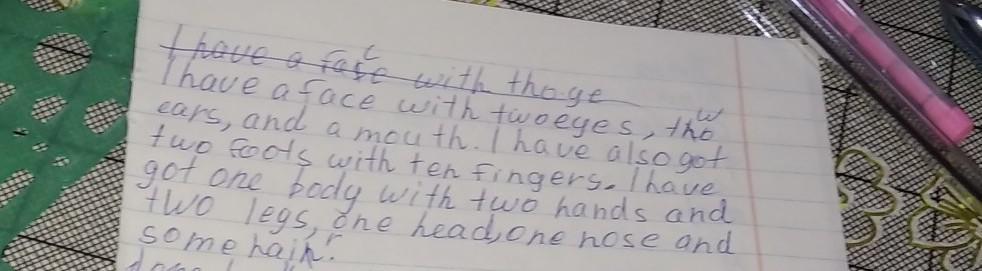 I have a face with thoge
I have a face with two eyes, two
ears, and a mouth. I have also got
two foots with ten fingers. I have
got one body with two hands and
two legs, one head, one nose and
some hair.